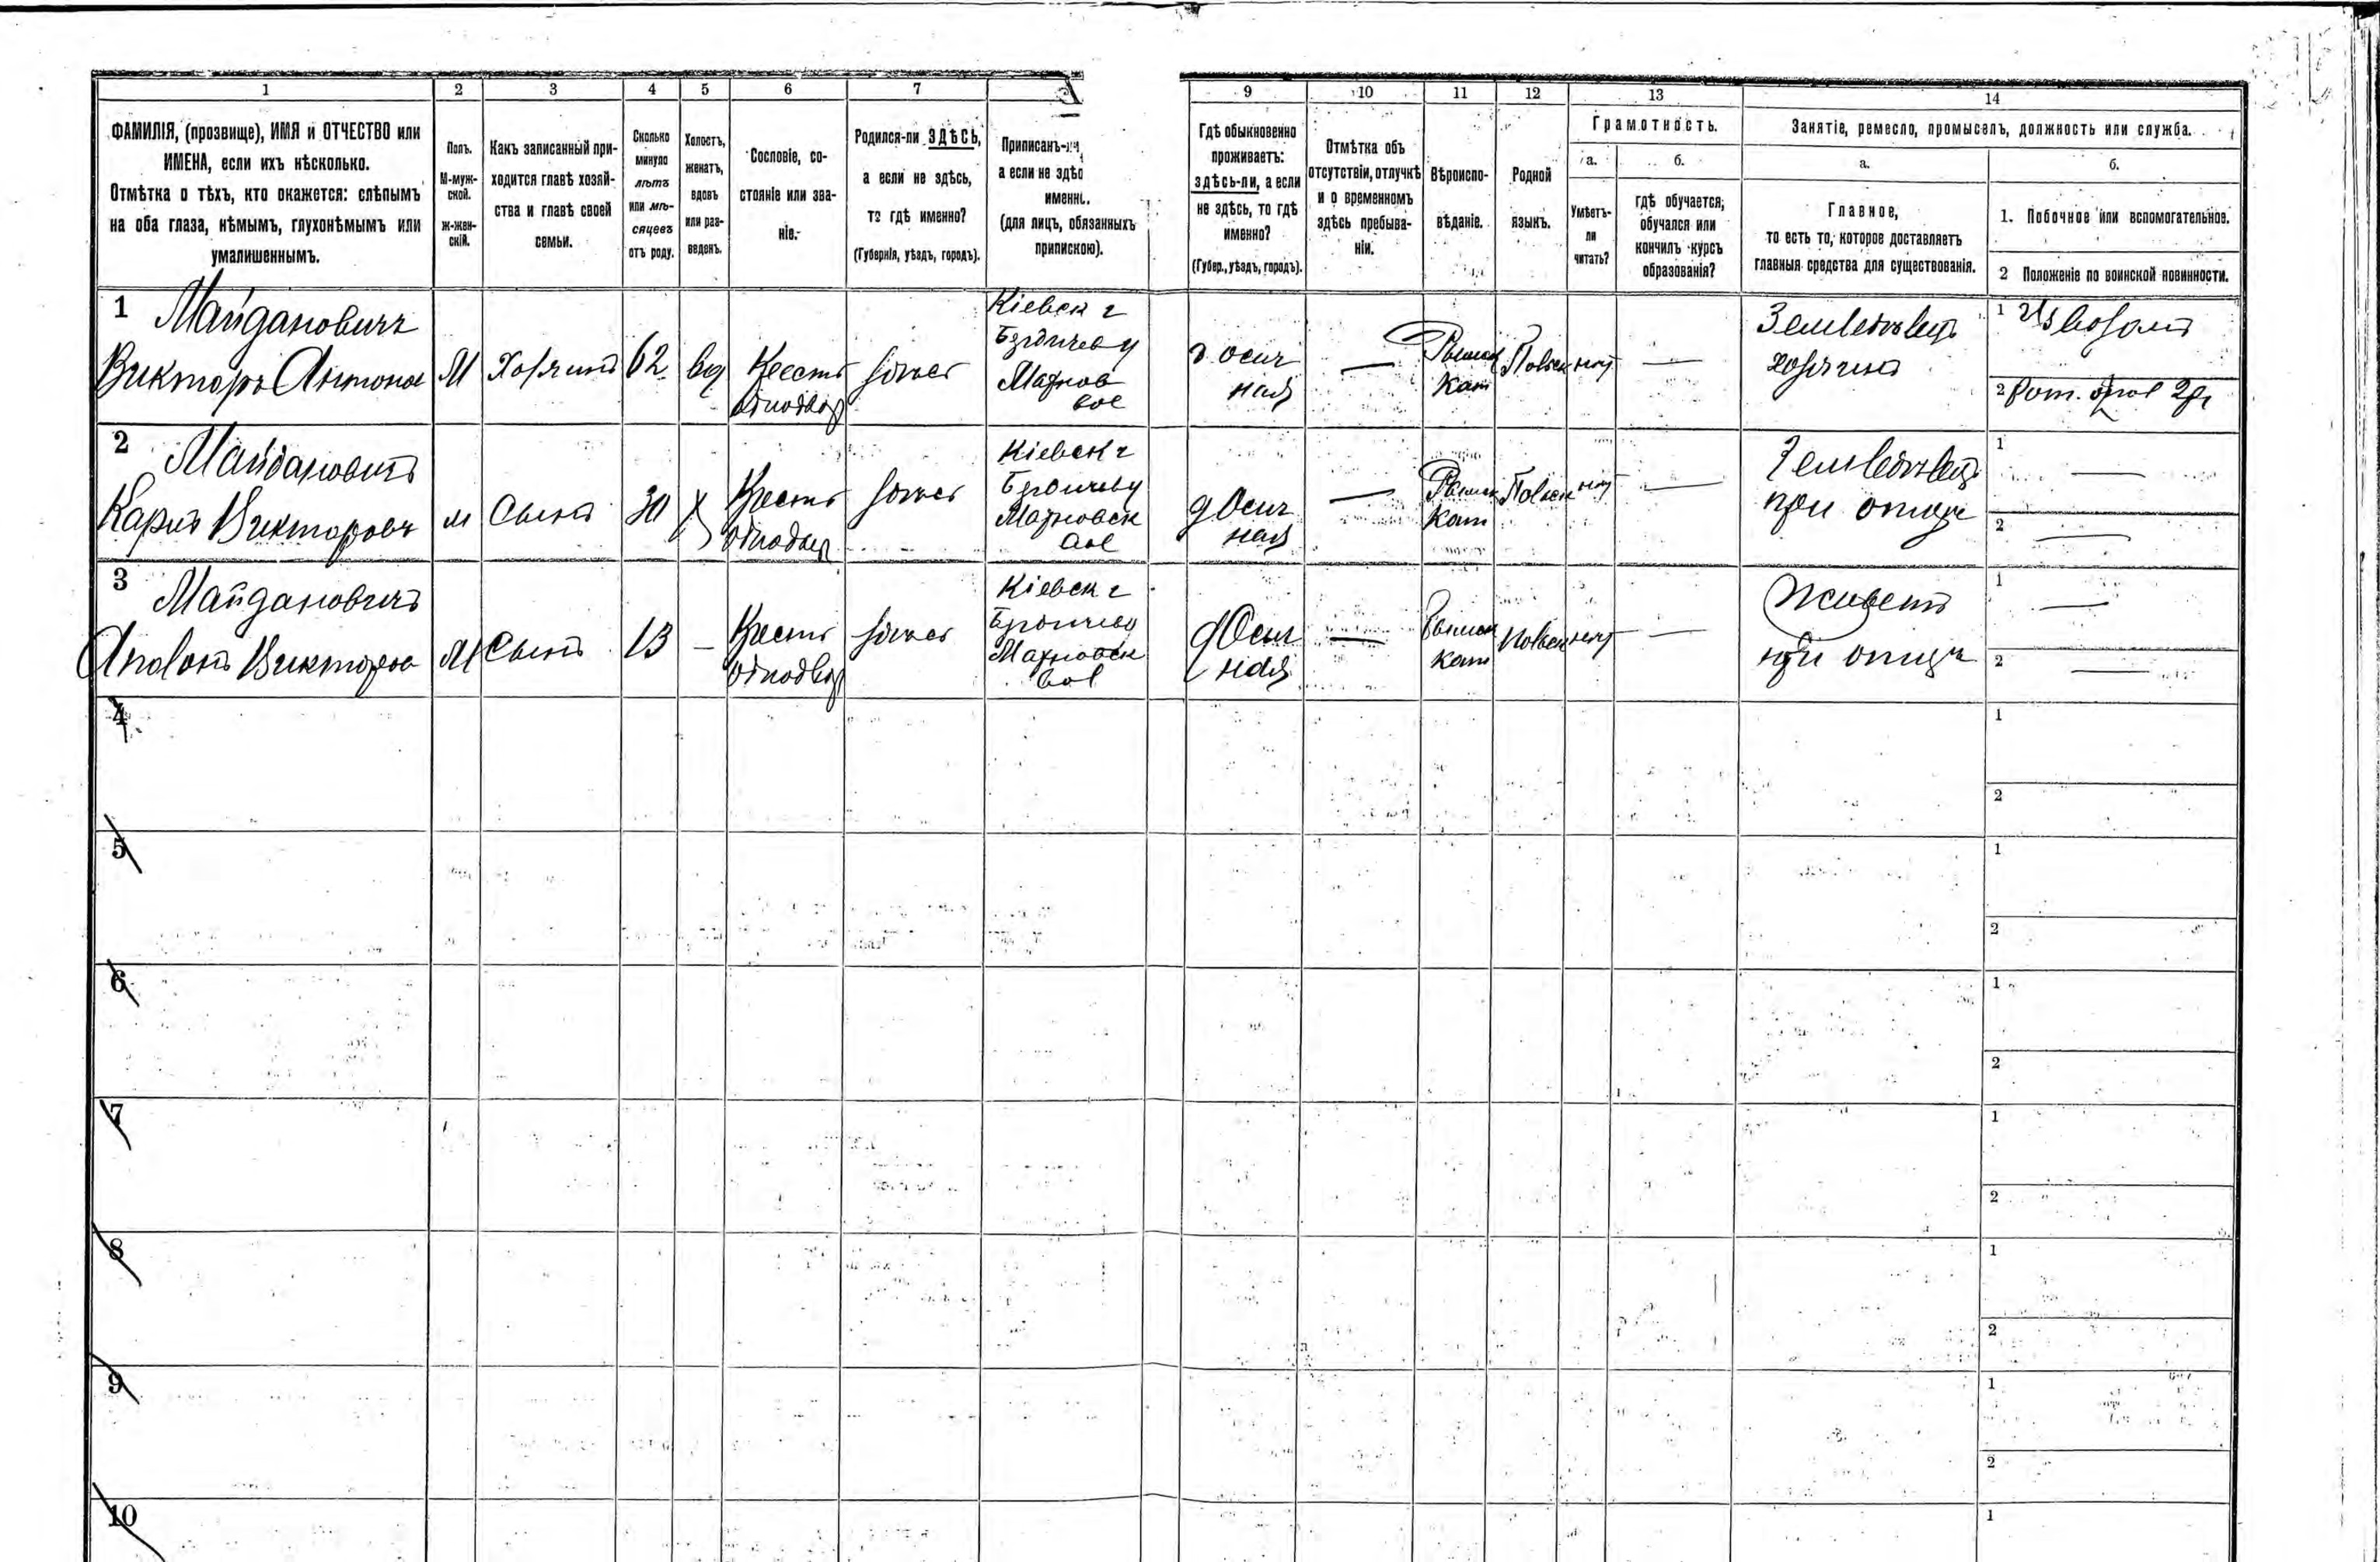 1 2 3 4 5 6 7 9 10 11 12 13 14
ФАМИЛІЯ, (прозвище), ИМЯ и ОТЧЕСТВО или
ИМЕНА, если ихъ нѣсколько.
Отмѣтка о тѣхъ, кто окажется: слѣпымъ
на оба глаза, нѣмымъ, глухонѣмымъ или
умалишеннымъ.
Полъ.
М-муж-
ской.
ж-жен-
скій.
Какъ записанный при-
ходится главѣ хозяй-
ства и главѣ своей
семьи.
Сколько
минуло
лѣтъ
или мѣ-
сяцевъ
отъ роду.
Холостъ,
женатъ,
вдовъ
или раз-
веденъ.
Сословіе, со-
стояніе или зва-
ніе.
Родился-ли ЗДѢСЬ,
а если не здѣсь,
то гдѣ именно?
(Губернія, уѣздъ, городъ).
Приписанъ-ли
а если не здѣс
именн
(для лицъ, обязанныхъ
припискою).
Гдѣ обыкновенно
проживаетъ:
здѣсь-ли, а если
не здѣсь, то гдѣ
именно?
(Губер., уѣздъ, городъ).
Отмѣтка объ
отсутствіи, отлучкѣ
и о временномъ
здѣсь пребыва-
ніи.
Вѣроиспо-
вѣданіе.
Родной
языкъ.
Грамотность.
а.
Умѣетъ-
ли
читать?
б.
гдѣ обучается,
обучался или
кончилъ курсъ
образованія?
Занятіе, ремесло, промыселъ, должность или служба.
а.
Главное,
то есть то, которое доставляетъ
главныя средства для существованія.
б.
1. Побочное или вспомогательное.
2 Положеніе по воинской повинности.
1 Майдановичъ
Викторъ Антонов
М
Хозяинъ
62
вд
Крестъ
однодвор
Кіевск г
Бердичев у
Махнов
вол
Римск
Кат
Польск
нет
—
Земледѣлец
хозяинъ
1 Извозом
2
2 Майдановичъ
Викторовъ
м
Сынъ
30
Х
Крестъ
однодвор
Кіевск г
Бердичев у
Махновск
вол
—
Римск
Кат
Польск
нет
—
Земледѣлец
при отце
1 —
2 —
3 Майдановичъ
Викторов
М
Сынъ
13
—
Крестъ
однодвор
Кіевск г
Бердичев
Махновск
вол
—
Римск
Кат
Польск
нет
—
Живетъ
при отце
1 —
2 —
4
1
2
5
1
2
6
1
2
7
1
2
8
1
2
9
1
2
10
1